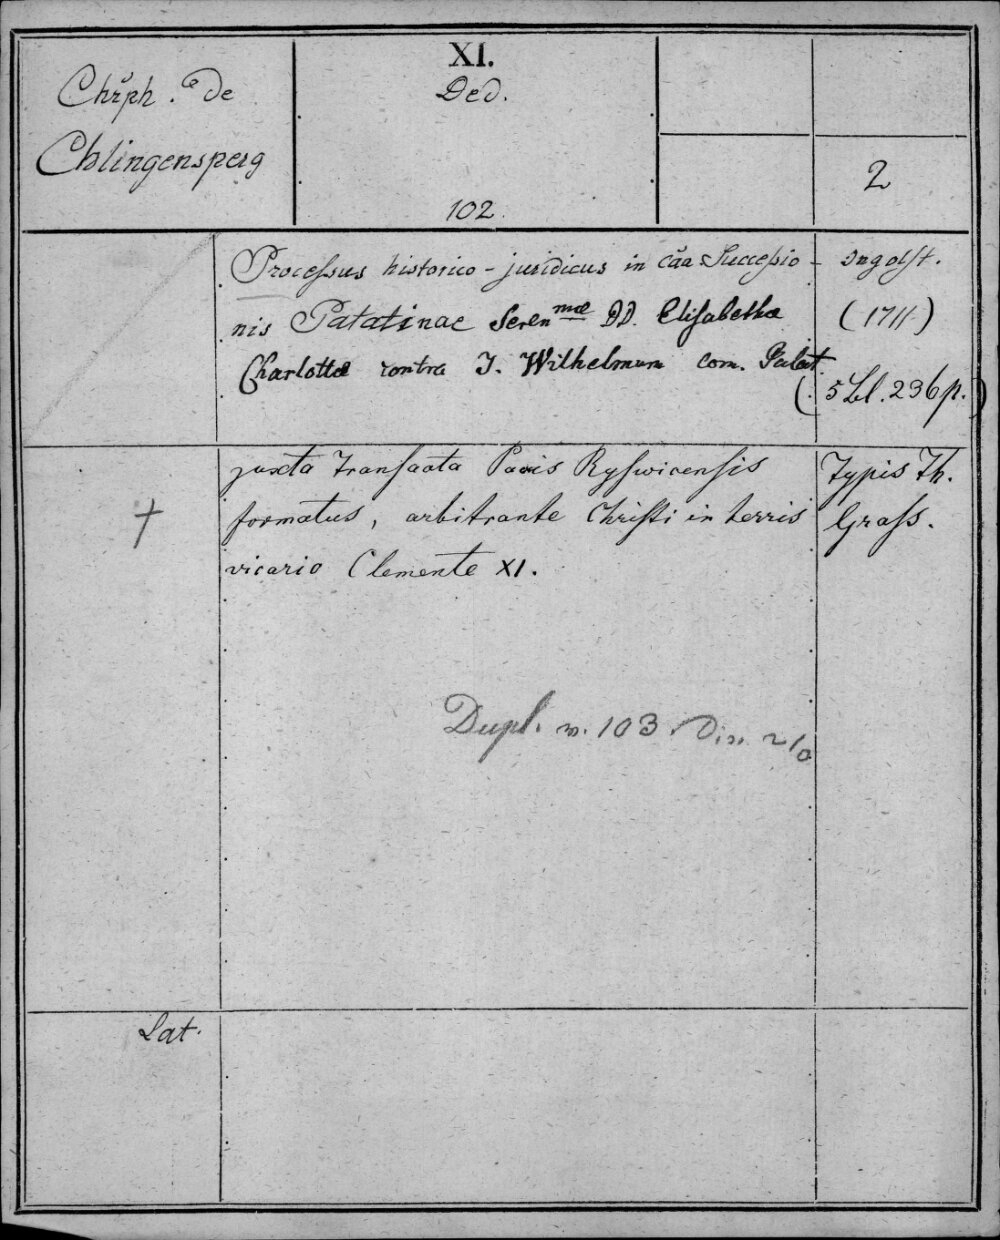 XI.
Chrph. de
Chlingensperg
Ded.
102.
2
Processus historico-juridicus in cãa Successio-
nis Palatinae Seren mae DD. Elisabethae
Charlottae contra J. Wilhelmum com. Palat.
Ingolst.
(1711)
(5 Bl. 296 p.)
juxta Transacta Pacis Ryswicensis
formatus, arbitrante Christi in terris
vicario Clemente XI.
†
Typis Th.
Grass.
Dupl. n. 103
Lat.